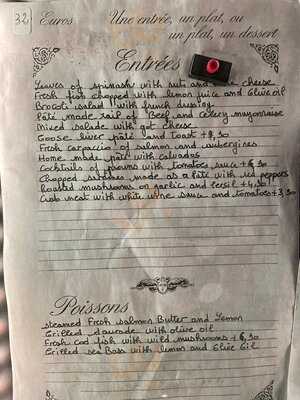 32 Euros
Une entrée, un plat, ou
un plat, un dessert
Entrées
Leaves of spinash with nut and cheese
Fresh fish chopped with lemon juice and Olive oil
Brocoli salad with french dressing
Pâté made rail of Beef and celery mayonnaise
Mixed salade with got cheese
Goose liver pâte and Toast +8,30
Fresh carpaccio of salmon and aubergines
Home made pâté with calvados
Cocktails of prawns with tomatoes sauce +6,30
Chopped sardines made as a pâte with red peppers
Roasted mushrooms on garlic and persil +4,30
Crab meat with white wine sauce and tomatoes +3,30
Poissons
Steamed Fresh salmon Butter and Lemon
Grilled daurade with olive oil
Fresh Cod fish with wild mushrooms +6,30
Grilled sea Bass with lemon and Olive Oil